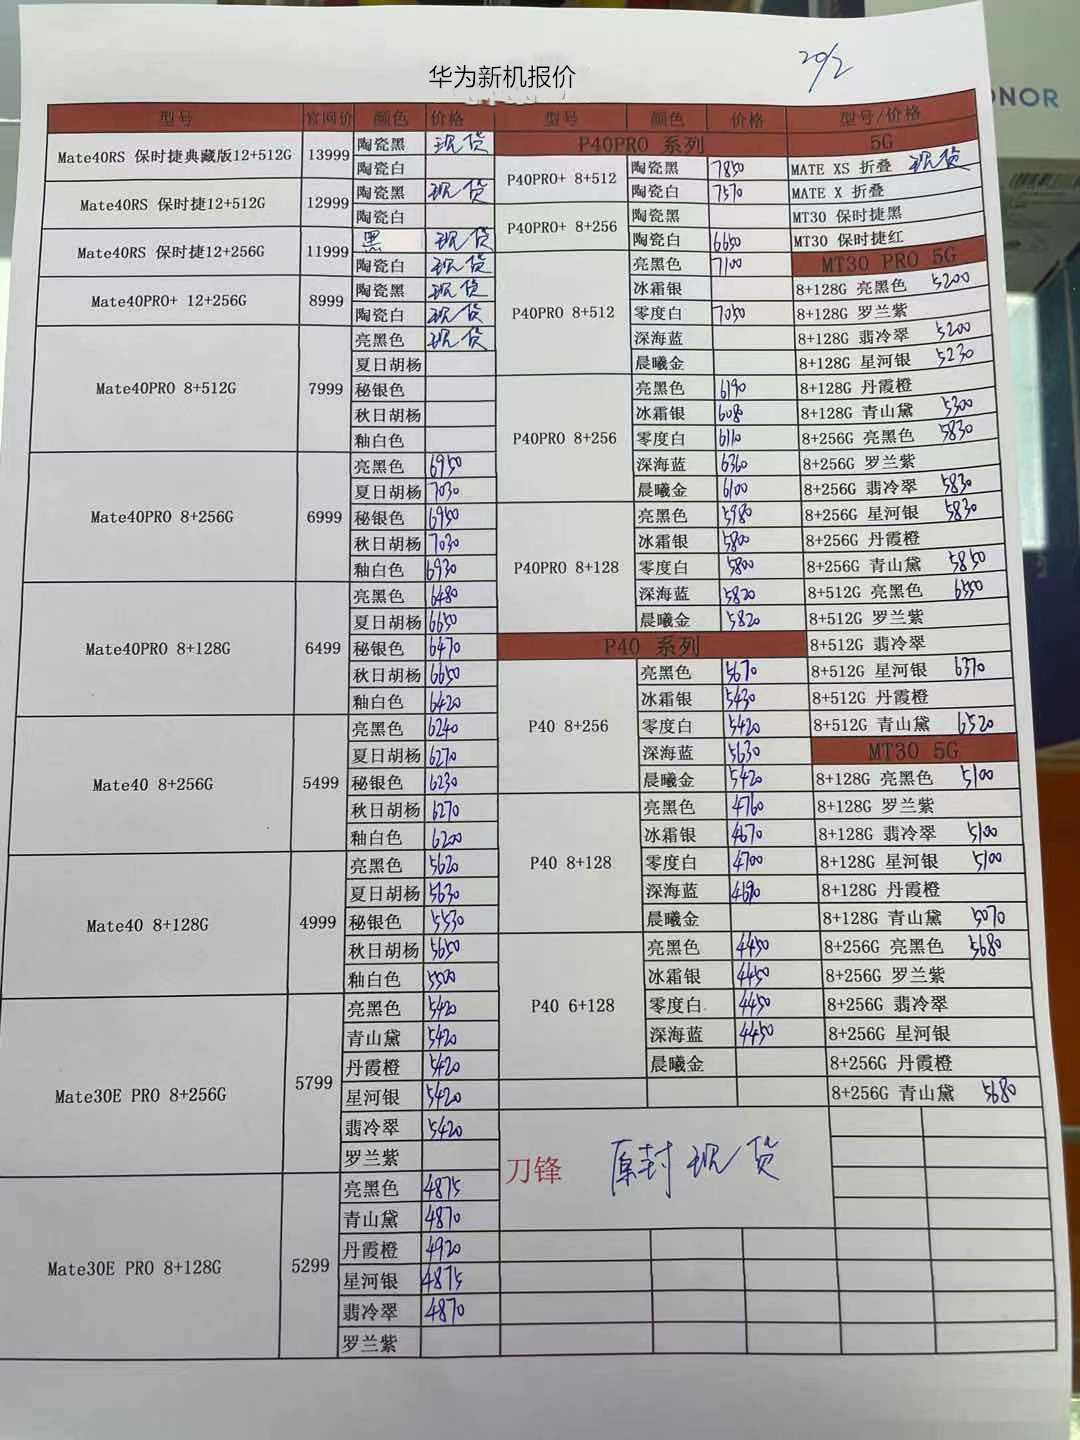 华为新机报价
20/2
HONOR
型号 官网价 颜色 价格 型号 颜色 价格 型号/价格
Mate40RS 保时捷典藏版12+512G 13999
陶瓷黑 现货
陶瓷白
Mate40RS 保时捷12+512G 12999
陶瓷黑 现货
陶瓷白
Mate40RS 保时捷12+256G 11999
黑 现货
陶瓷白 现货
Mate40PRO+ 12+256G 8999
陶瓷黑 现货
陶瓷白 现货
Mate40PRO 8+512G 7999
亮黑色 现货
夏日胡杨
秘银色
秋日胡杨
釉白色
Mate40PRO 8+256G 6999
亮黑色 6950
夏日胡杨 7030
秘银色 6950
秋日胡杨 7030
釉白色 6930
Mate40PRO 8+128G 6499
亮黑色 6480
夏日胡杨 6650
秘银色 6470
秋日胡杨 6650
釉白色 6420
Mate40 8+256G 5499
亮黑色 6240
夏日胡杨 6270
秘银色 6230
秋日胡杨 6270
釉白色 6200
Mate40 8+128G 4999
亮黑色 5620
夏日胡杨 5630
秘银色 5530
秋日胡杨 5650
釉白色 5500
Mate30E PRO 8+256G 5799
亮黑色 5420
青山黛 5420
丹霞橙 5420
星河银 5420
翡冷翠 5420
罗兰紫
Mate30E PRO 8+128G 5299
亮黑色 4875
青山黛 4870
丹霞橙 4920
星河银 4875
翡冷翠 4870
罗兰紫
P40PRO 系列
P40PRO+ 8+512
陶瓷黑 7850
陶瓷白 7570
P40PRO+ 8+256
陶瓷黑
陶瓷白 6650
P40PRO 8+512
亮黑色 7100
冰霜银
零度白 7050
深海蓝
晨曦金
P40PRO 8+256
亮黑色 6190
冰霜银 6080
零度白 6110
深海蓝 6360
晨曦金 6100
P40PRO 8+128
亮黑色 5980
冰霜银 5800
零度白 5800
深海蓝 5820
晨曦金 5820
P40 系列
P40 8+256
亮黑色 5670
冰霜银 5430
零度白 5420
深海蓝 5630
晨曦金 5420
P40 8+128
亮黑色 4760
冰霜银 4670
零度白 4700
深海蓝 4690
晨曦金
P40 6+128
亮黑色 4450
冰霜银 4450
零度白 4450
深海蓝 4450
晨曦金
刀锋 原封现货
5G
MATE XS 折叠 现货
MATE X 折叠
MT30 保时捷黑
MT30 保时捷红
MT30 PRO 5G
8+128G 亮黑色 5200
8+128G 罗兰紫
8+128G 翡冷翠 5200
8+128G 星河银 5230
8+128G 丹霞橙
8+128G 青山黛 5300
8+256G 亮黑色 5830
8+256G 罗兰紫
8+256G 翡冷翠 5830
8+256G 星河银 5830
8+256G 丹霞橙
8+256G 青山黛 5850
8+512G 亮黑色 6550
8+512G 罗兰紫
8+512G 翡冷翠
8+512G 星河银 6370
8+512G 丹霞橙
8+512G 青山黛 6520
MT30 5G
8+128G 亮黑色 5100
8+128G 罗兰紫
8+128G 翡冷翠 5100
8+128G 星河银 5100
8+128G 丹霞橙
8+128G 青山黛 5070
8+256G 亮黑色 5680
8+256G 罗兰紫
8+256G 翡冷翠
8+256G 星河银
8+256G 丹霞橙
8+256G 青山黛 5680